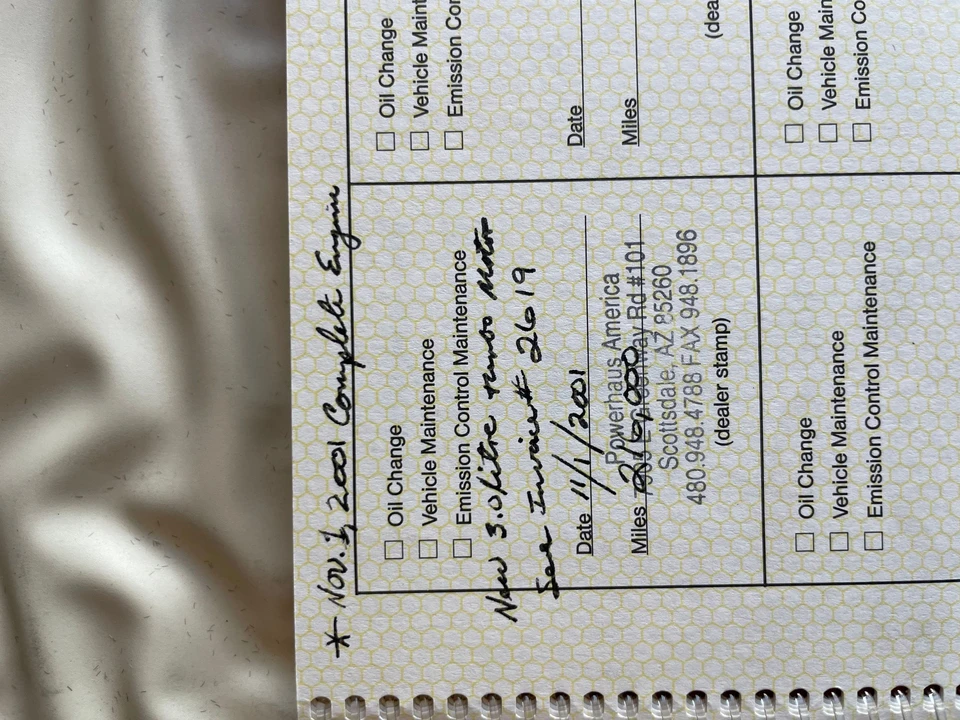 * Nov. 1, 2001 Complete Engine
Oil Change
Vehicle Maintenance
Emission Control Maintenance
New 3.0 litre turbo motor
See Invoice # 2619
Date 11/1/2001
Powerhaus America
Miles 26,000 Rd #101
Scottsdale, AZ 85260
480.948.4788 FAX 948.1896
(dealer stamp)
Oil Change
Vehicle Maint
Emission Con
Date
Miles
(dea
Oil Change
Vehicle Maintenance
Emission Control Maintenance
Oil Change
Vehicle Main
Emission Co